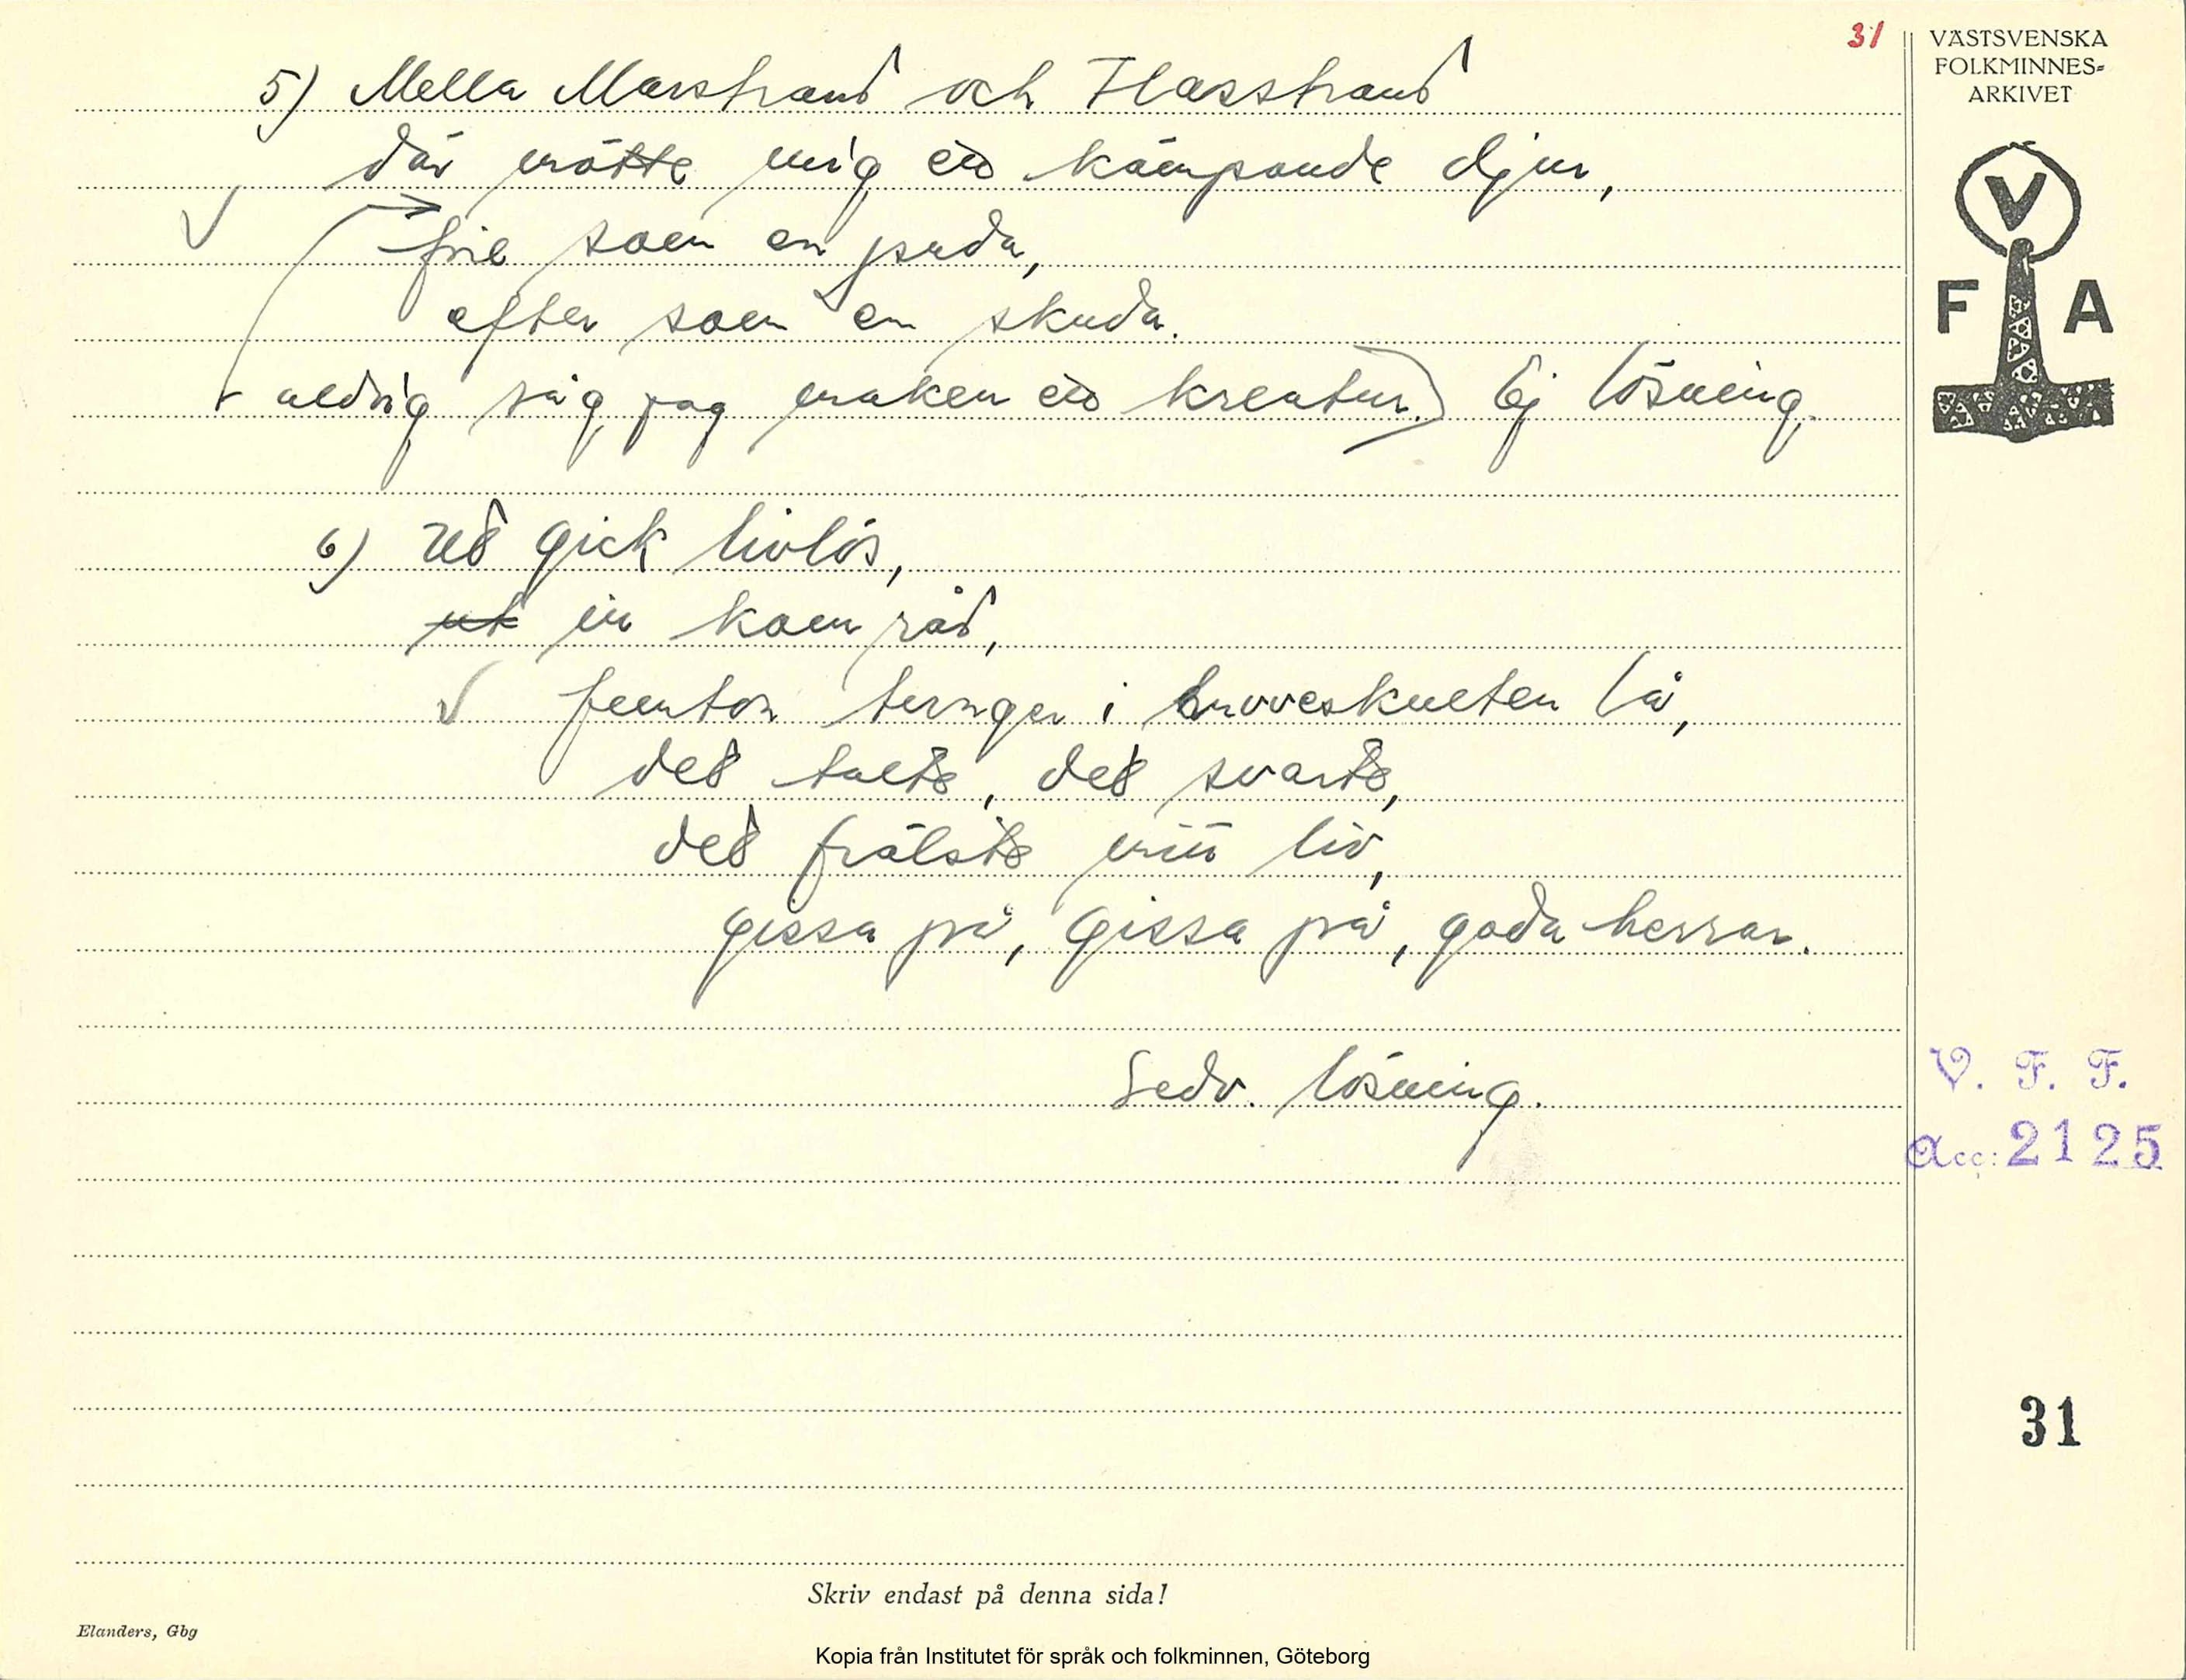 31
VÄSTSVENSKA
FOLKMINNES=
ARKIVET
V
F A
5) Mella Marstrand och Flasstrand
där mötte mig ett kämpande djur,
före som en puda,
efter som en skuda.
aldrig såg jag maken ett kreatur.) Ej lösning.
6) Ut gick livlös,
ut in kom råd,
femton tungor i huveskulten lå,
det talte, det svarte,
det frälste mitt liv,
gissa på, gissa på, goda herrar.
Sedv. lösning.
V. F. F.
Acc: 2125
31
Skriv endast på denna sida!
Elanders, Gbg
Kopia från Institutet för språk och folkminnen, Göteborg